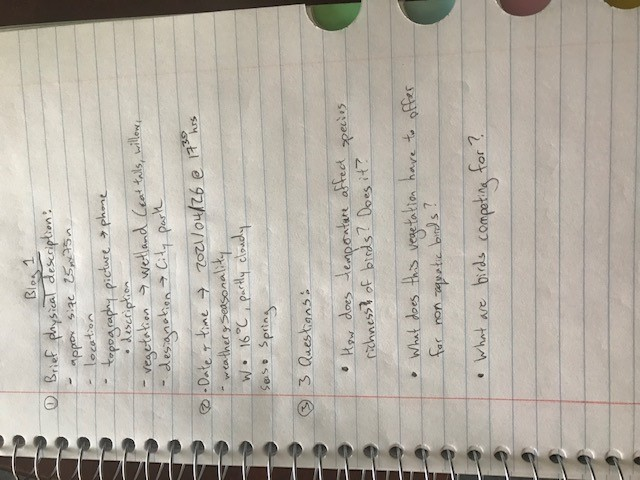 Blog 1
① Brief physical description:
- approx size 25m x 75m
- location
- topography picture → phone
• description
- vegetation → wetland (cat tails, willow,
- designation → City park
② • Date + time → 2021/04/26 @ 1730 hrs
- weather + seasonality
W • 16°C, partly cloudy
seas • Spring
③ 3 Questions:
• How does temperature affect species
richness of birds? Does it?
• What does this vegetation have to offer
for non aquatic birds?
• What are birds competing for?